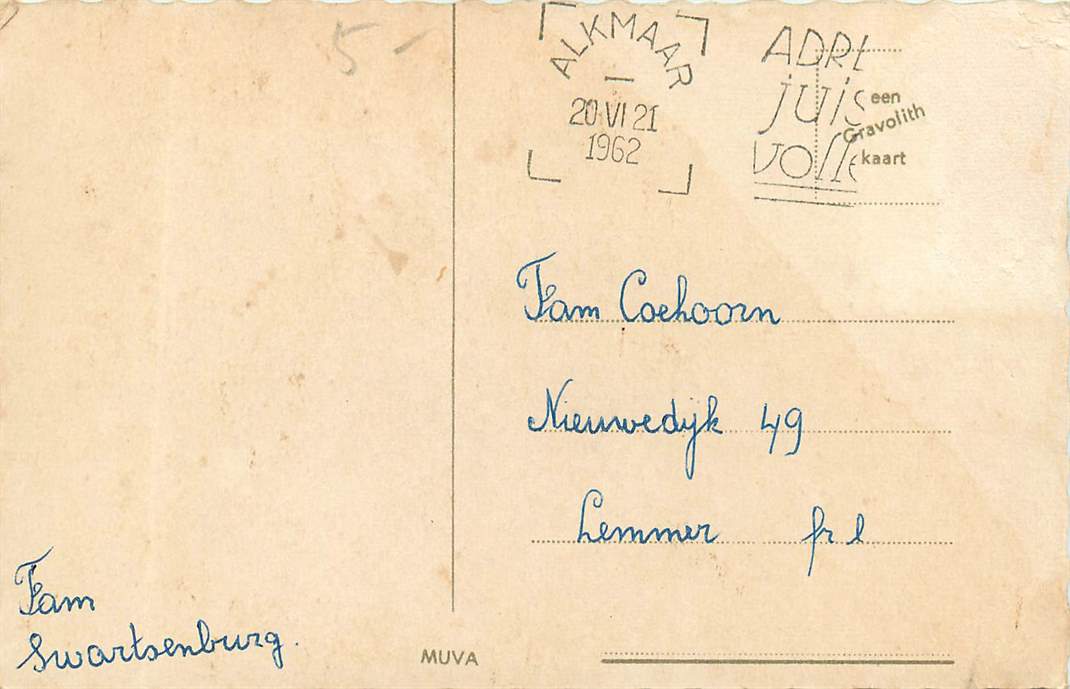 5-
ALKMAAR
20 VI 21
1962
ADRE
juis
volle
een
Gravolith
kaart
Fam Coehoorn
Nieuwedijk 49
Lemmer frl
Fam
Swartsenburg.
MUVA